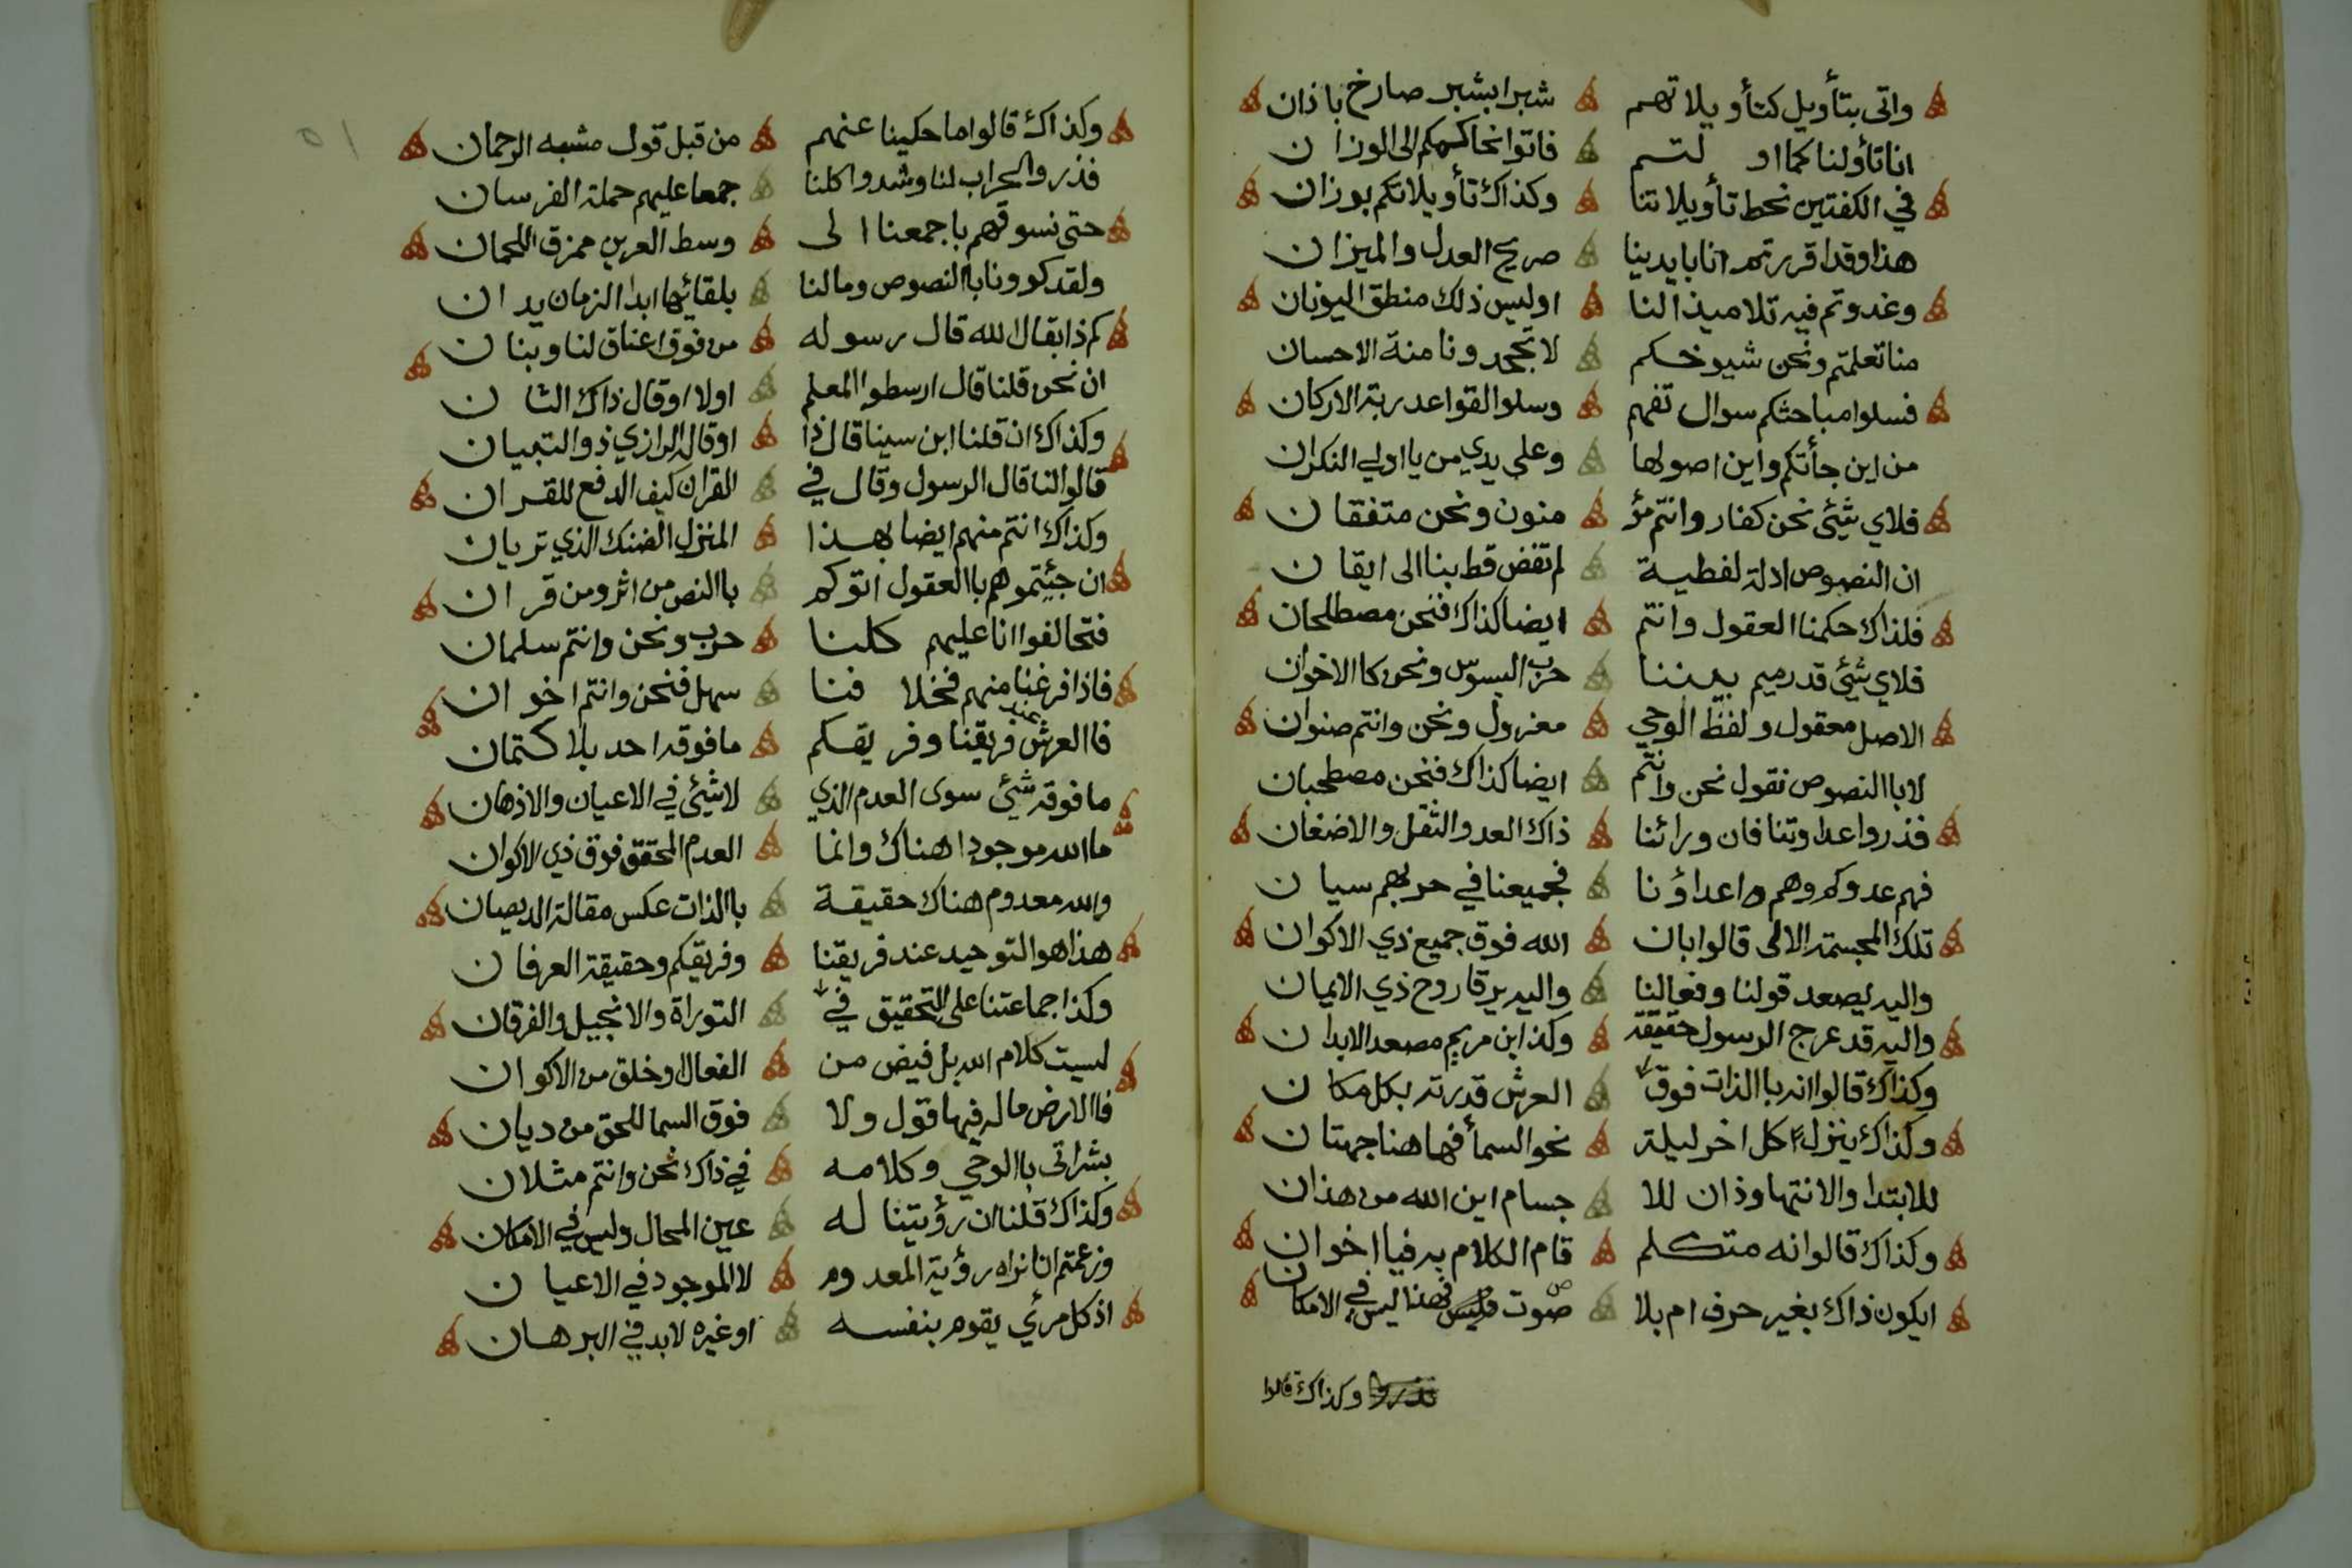 واتى بتأويل كتأويلاتهم شبرا بشبر صارخ باذان
انا تأولنا كما او لتم فاتوا نحاكمكم الى الوزان
في الكفتين نحط تأويلاتنا وكذاك تأويلاتكم بوزان
هذا وقد اقررتم انا بايدينا صريح العدل والميزان
وغدوتم فيه تلاميذا لنا اوليس ذلك منطق اليونان
منا تعلمتم ونحن شيوخكم لا تجحدونا منة الاحسان
فسلوا مباحثكم سوال تفهم وسلوا القواعد ربة الاركان
من اين جأتكم واين اصولها وعلى يدي من يا اولي النكران
فلاي شئي نحن كفار وانتم مؤ منون ونحن متفقان
ان النصوص ادلة لفظية لم تفض قط بنا الى ايقان
فلذاك حكمنا العقول وانتم ايضا كذاك فنحن مصطلحان
فلاي شئي قد رميم بيننا حرب البسوس ونحن كا الاخوان
الاصل معقول ولفظ الوحي معزول ونحن وانتم صنوان
لا با النصوص نقول نحن وانتم ايضا كذاك فنحن مصطحبان
فذروا عداوتنا فان ورائنا ذاك العدو الثقل والاضغان
فهم عدوكم وهم اعداؤنا فجميعنا في حربهم سيان
تلك المجسمة الالى قالوا بان الله فوق جميع ذي الاكوان
واليه يصعد قولنا وفعالنا واليه يرقا روح ذي الايمان
واليه قد عرج الرسول حقيقة وكذا ابن مريم مصعد الابدان
وكذاك قالوا انه با الذات فوق العرش قدرته بكل مكان
وكذاك ينزل كل اخر ليلة نحو السمأ فها هنا جهتان
للابتدا والانتها وذان للا جسام اين الله من هذان
وكذاك قالوا انه متكلم قام الكلام به فيا اخوان
ايكون ذاك بغير حرف ام بلا صوت فهذا ليس في الامكان
وكذاك قالوا
وكذاك قالوا ما حكينا عنهم من قبل قول مشبه الرحمان
فذروا الحراب لنا وشدوا كلنا جمعا عليهم حملة الفرسان
حتى نسوقهم باجمعنا الى وسط العرين ممزق اللحمان
ولقد كوونا با النصوص ومالنا بلقائها ابدا الزمان يدان
كم ذا بقال الله قال رسوله من فوق اعناق لنا وبنان
ان نحن قلنا قال ارسطوا المعلم اولا او قال ذاك الثان
وكذاك ان قلنا ابن سينا قال ذا او قاله الرازي ذو التبيان
قالوا لنا قال الرسول وقال في القران كيف الدفع للقران
وكذاك انتم منهم ايضا بهذا المنزل الضنك الذي تريان
ان جئيتموهم با العقول اتوكم با النص من اثر ومن قران
فتحالفوا انا عليهم كلنا حرب ونحن وانتم سلمان
فاذا فرغنا منهم فخلا فنا سهل فنحن وانتم اخوان
فا العرش عند فريقنا وفريقكم ما فوقه احد بلا كتمان
ما فوقه شئي سوى العدم الذي لا شئي في الاعيان والاذهان
ما الله موجودا هناك وانما العدم المحقق فوق ذي الاكوان
والله معدوم هناك حقيقة با الذات عكس مقالة الديصان
هذا هو التوحيد عند فريقنا وفريقكم وحقيقة العرفان
وكذا جماعتنا على التحقيق في التوراة والانجيل والفرقان
ليست كلام الله بل فيض من الفعال او خلق من الاكوان
فا الارض ما له فيها قول ولا فوق السما للحق من ديان
بشر اتى با الوحي وكلامه في ذاك نحن وانتم مثلان
وكذاك قلنا ان رؤيتنا له عين المحال وليس في الامكان
وزعمتم انا نراه رؤية المعدوم لا الموجود في الاعيان
اذ كل مرأي يقوم بنفسه او غيره لا بد في البرهان